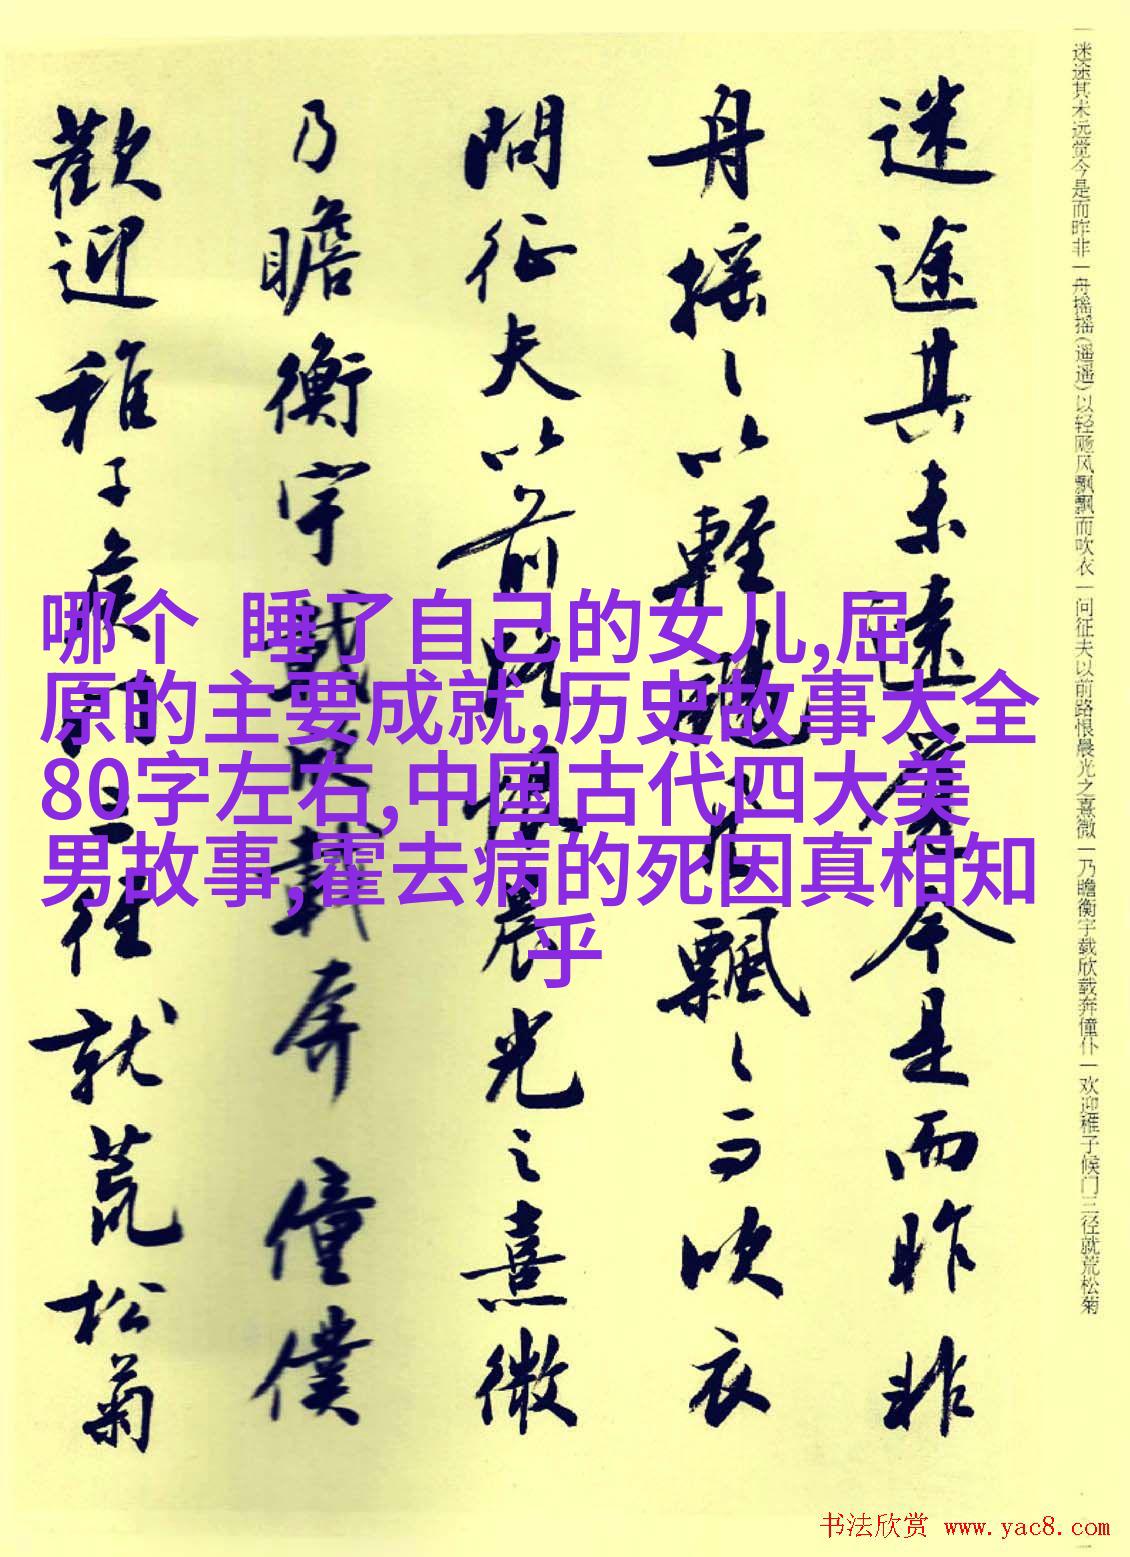 迷途其未远觉今是而昨非
舟摇〻以轻飏风飘〻而吹衣
問征夫以前路恨晨光之熹微
乃瞻衡宇載欣載奔僮僕
歡迎稚子候门三徑就荒松菊
一迷途其未远觉今是而昨非一舟摇摇(遥遥)以轻飏风飘飘而吹衣一问征夫以前路恨晨光之熹微一乃瞻衡宇载欣载奔僮仆一欢迎稚子候门三径就荒松菊
哪个 睡了自己的女儿,屈
原的主要成就,历史故事大全
80字左右,中国古代四大美
男故事,霍去病的死因真相知
乎
书法欣赏 www.yac8.com